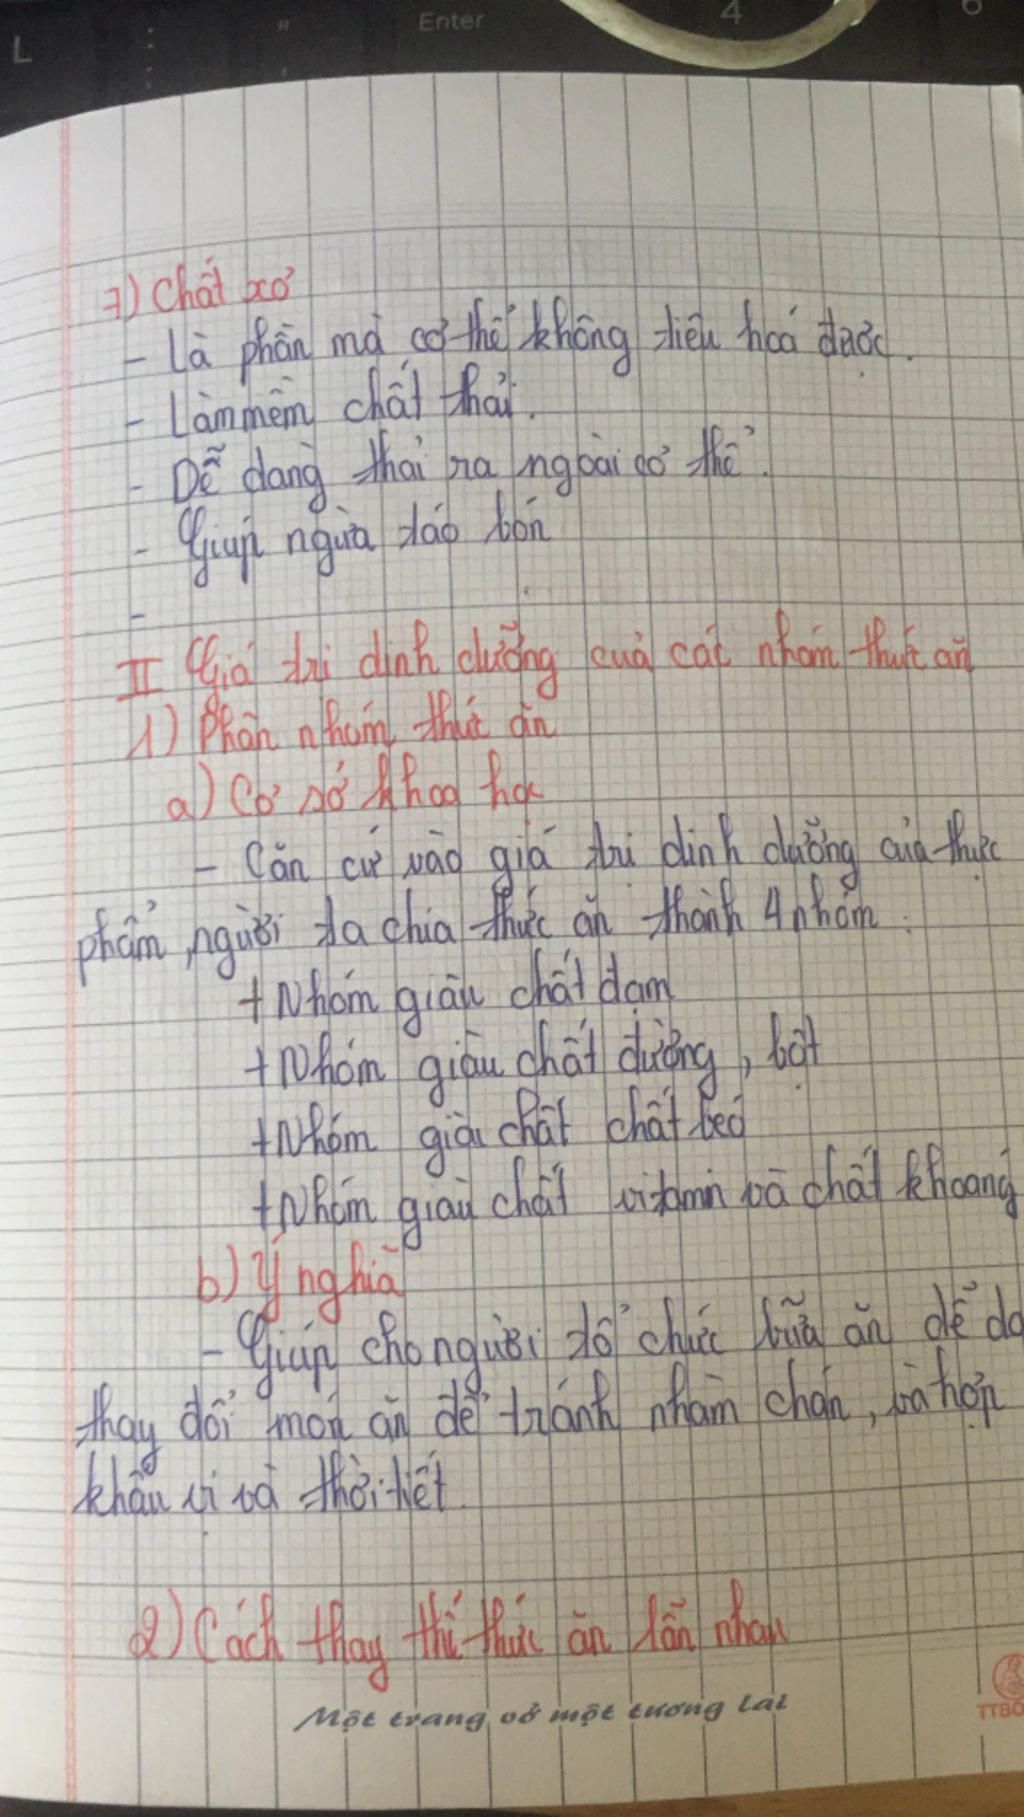 L : " Enter 4 6
7) Chất xơ
- Là phần mà cơ thể không tiêu hoá được.
- Làm mềm chất thải.
- Dễ dàng thải ra ngoài cơ thể.
- Giúp ngừa táo bón
-
II Giá trị dinh dưỡng của các nhóm thức ăn
1) Phân nhóm thức ăn
a) Cơ sở khoa học
- Căn cứ vào giá trị dinh dưỡng của thực
phẩm, người ta chia thức ăn thành 4 nhóm:
+ Nhóm giàu chất đạm
+ Nhóm giàu chất đường, bột
+ Nhóm giàu chất chất béo
+ Nhóm giàu chất vitamin và chất khoáng
b) Ý nghĩa
- Giúp cho người tổ chức bữa ăn dễ da
thay đổi món ăn để tránh nhàm chán, và hợp
khẩu vị và thời tiết
2) Cách thay thế thức ăn lẫn nhau
Một trang vở một tương lai
TTBO